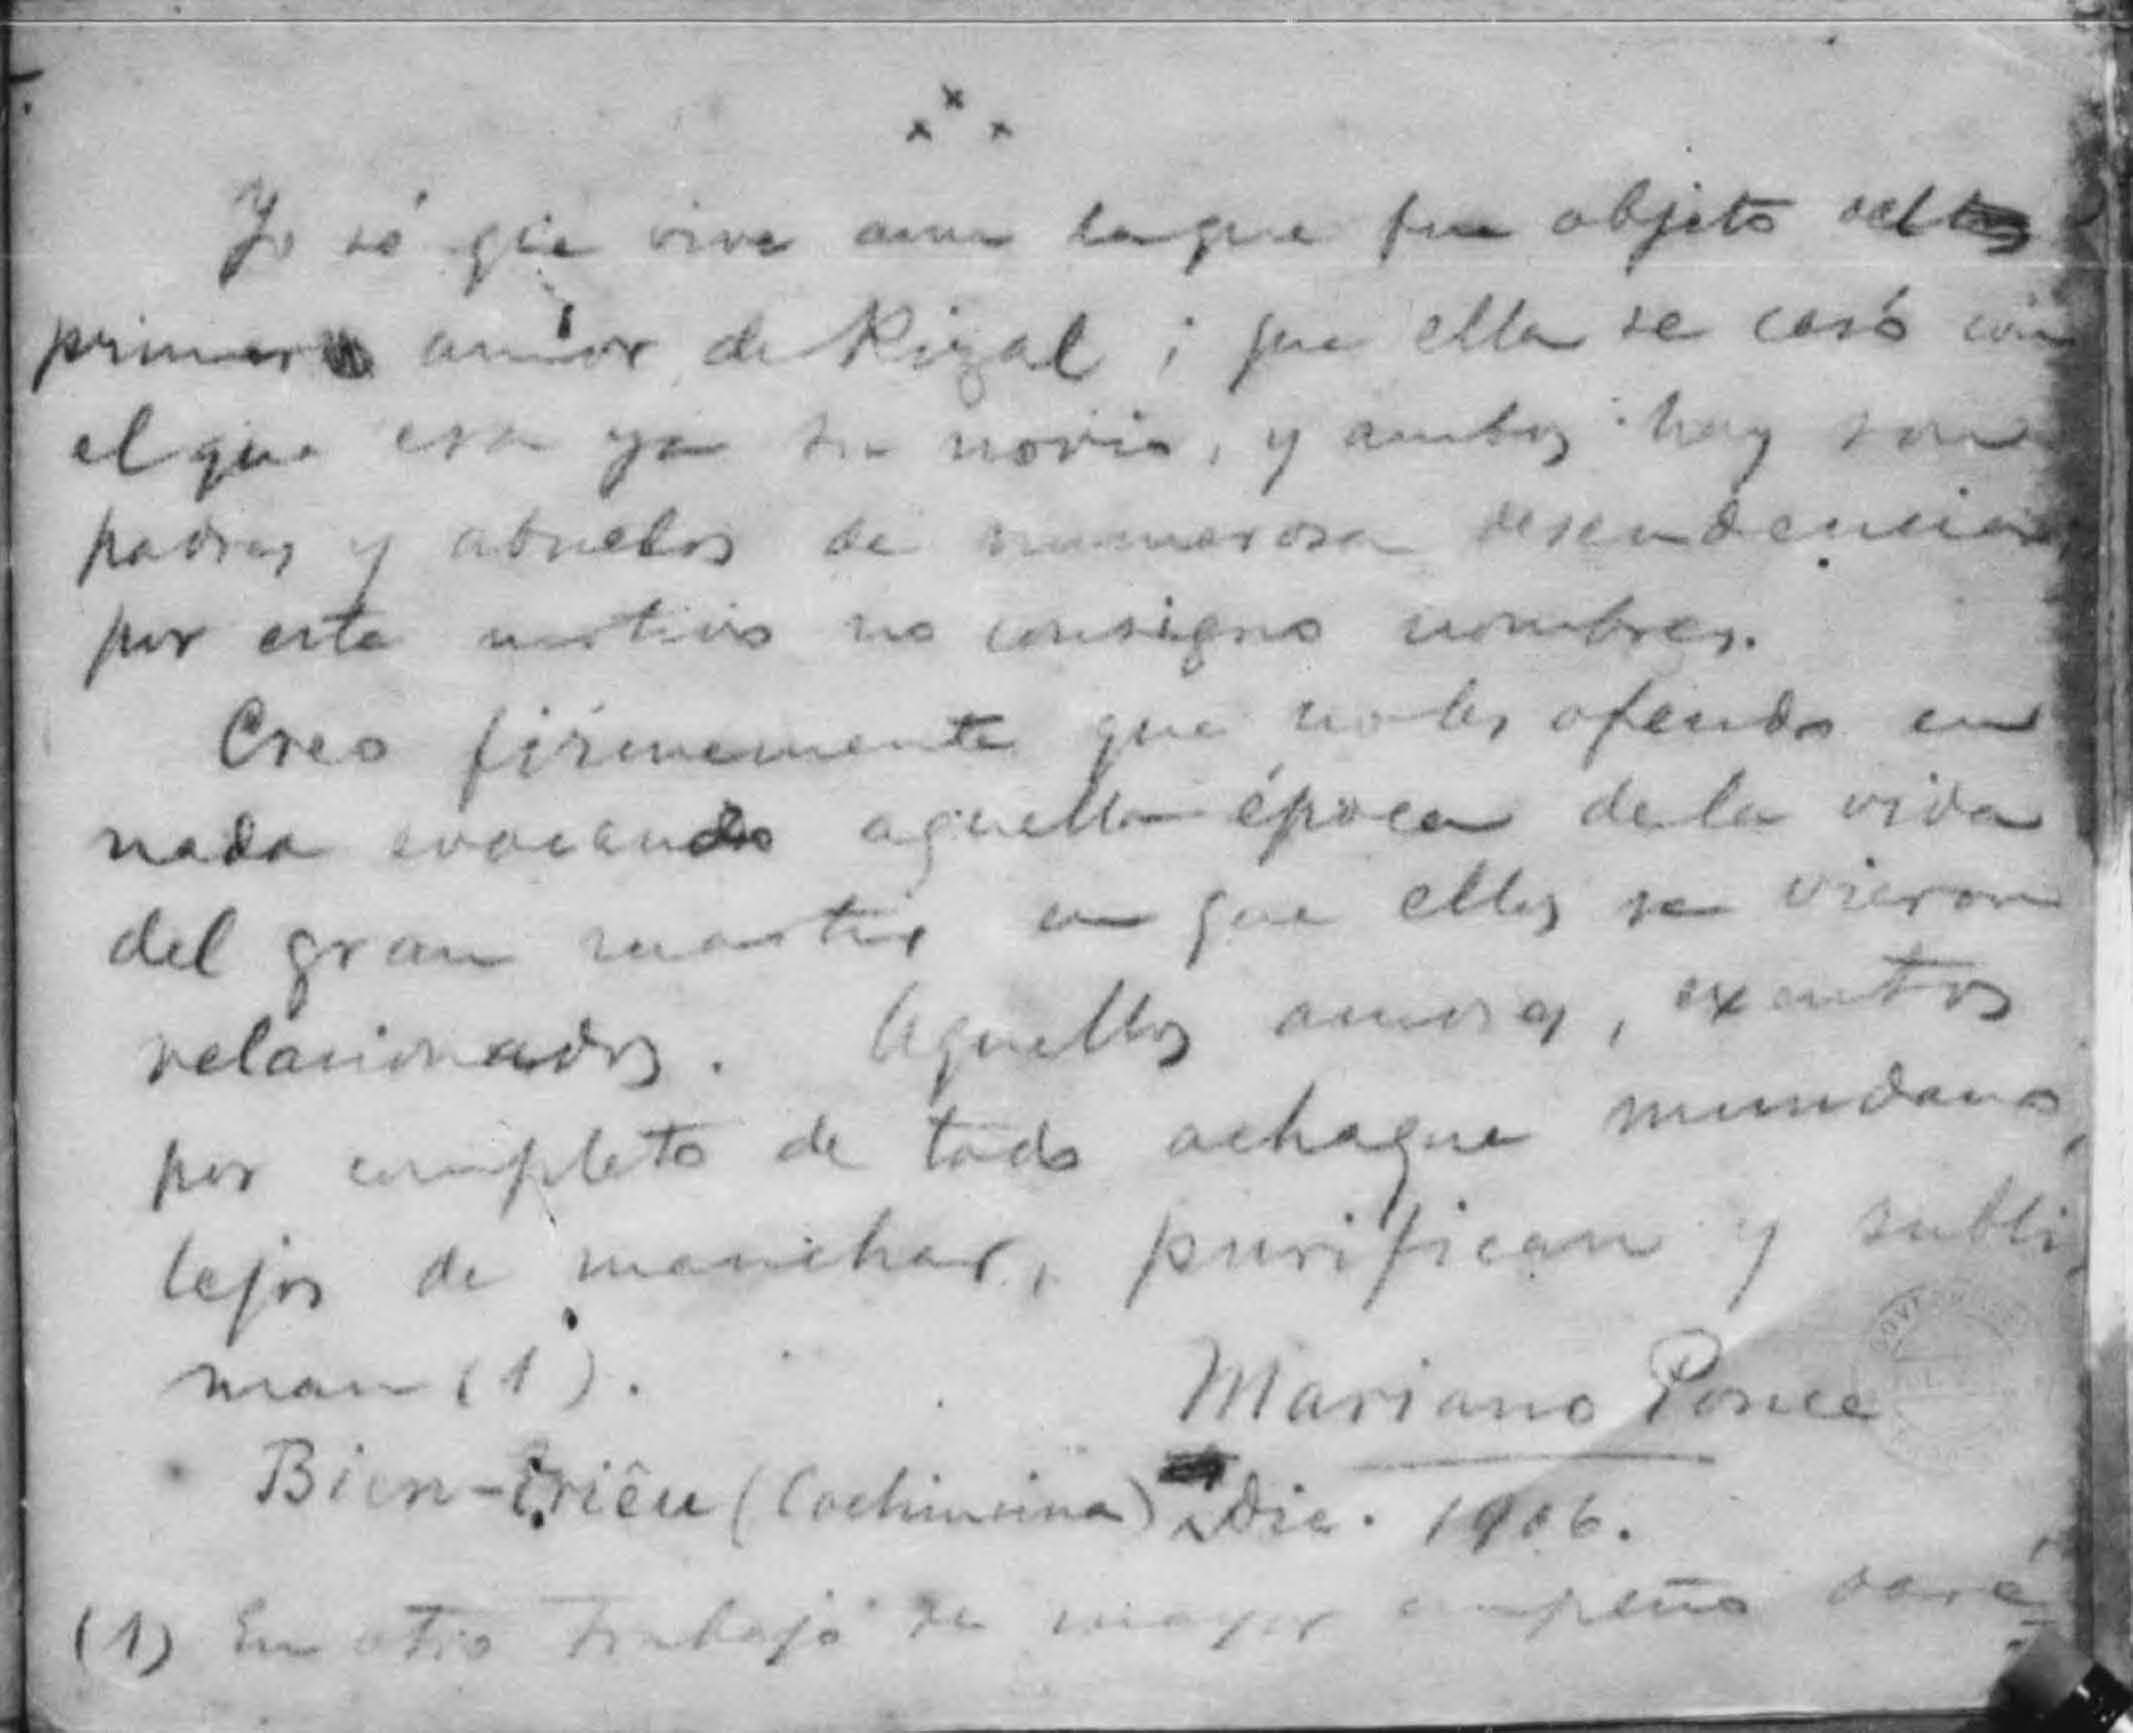 Yo sé que vive aun la que fue objeto del
primer amor de Rizal; que ella se casó con
el que era ya su novio, y ambos hoy son
padres y abuelos de numerosa descendencia;
por este motivo no consigno nombres.
Creo firmemente que no les ofendo en
nada evocando aquella época de la vida
del gran martir en que ellos se vieron
relacionados. Aquellos amores, exentos
por completo de todo achaque mundano,
lejos de manchar, purifican y subli-
man (1).
Mariano Ponce
Bien-triêu (Cochinchina) Dic. 1906.
(1) En otro trabajo de mayor empeño daré